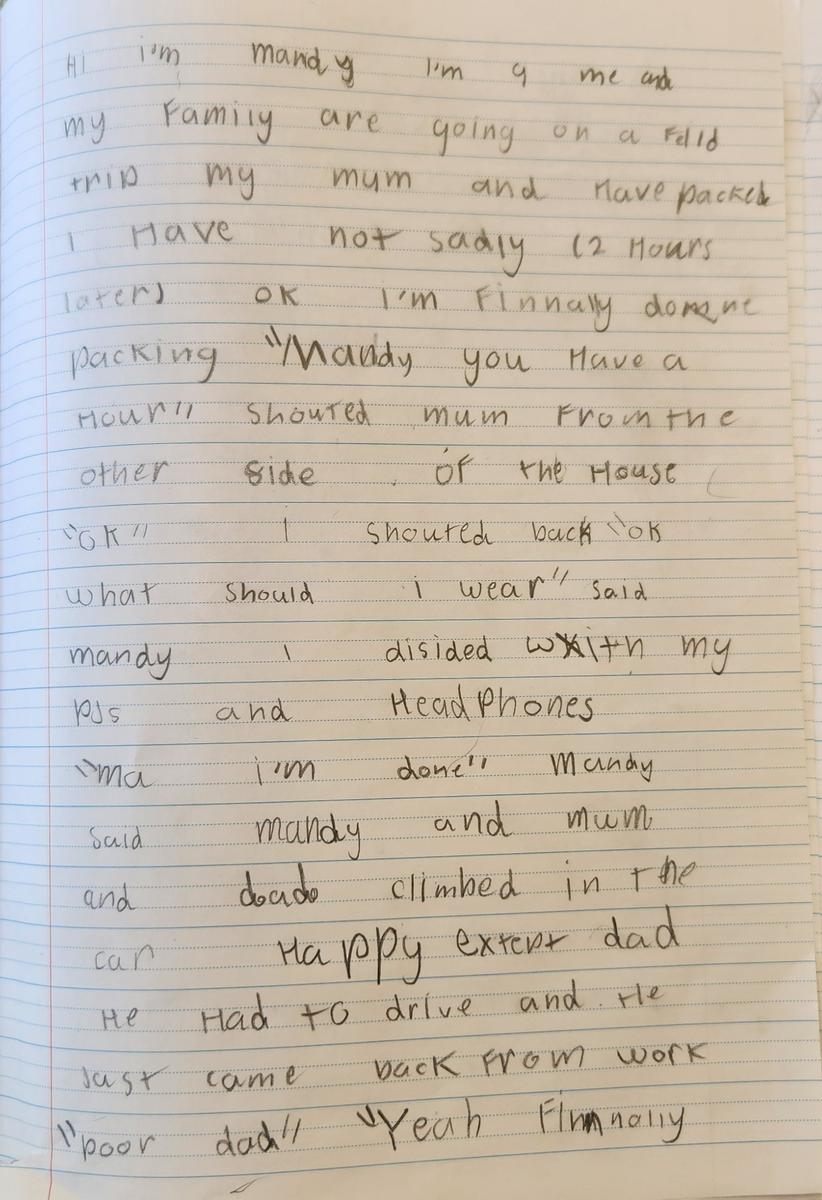 Hi i'm mandy I'm 9 me and
my Family are going on a Feild
trip my mum and Have packed
I Have not sadly (2 Hours
later) OK I'm Finnally done
packing "Mandy you Have a
Hour" shouted mum From the
other side of the House
"OK" I shouted back "ok
what should i wear" said
mandy I disided with my
PJs and HeadPhones
"ma i'm done" Mandy
said mandy and mum
and dad climbed in the
car Happy extept dad
He Had to drive and He
Just came back From work
"poor dad" "Yeah Finnally